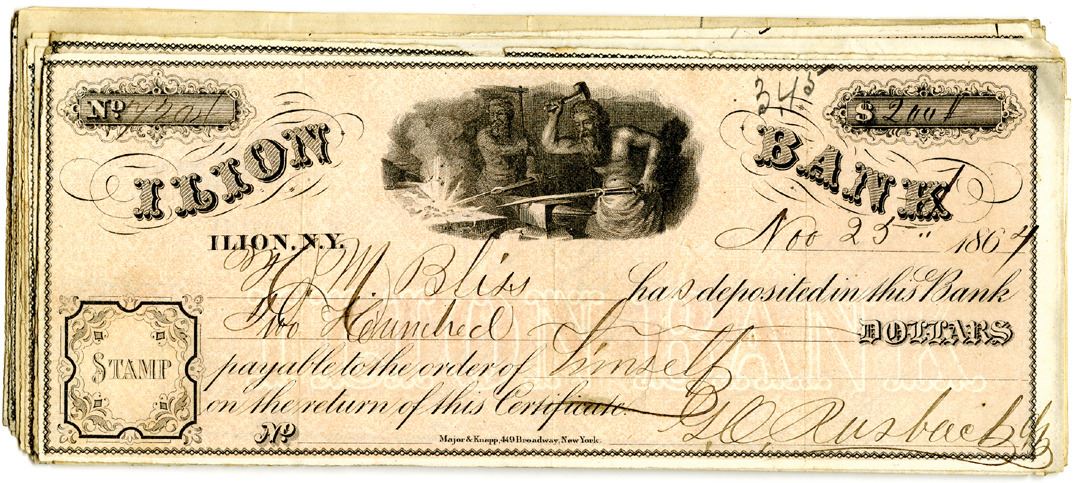 345
No $ 200
ILION BANK
ILION, N.Y. Nov 25 " 1864
H. M. Bliss has deposited in this Bank
Two Hundred DOLLARS
payable to the order of himself
STAMP
on the return of this Certificate.
No
Major & Knapp, 449 Broadway, New York.